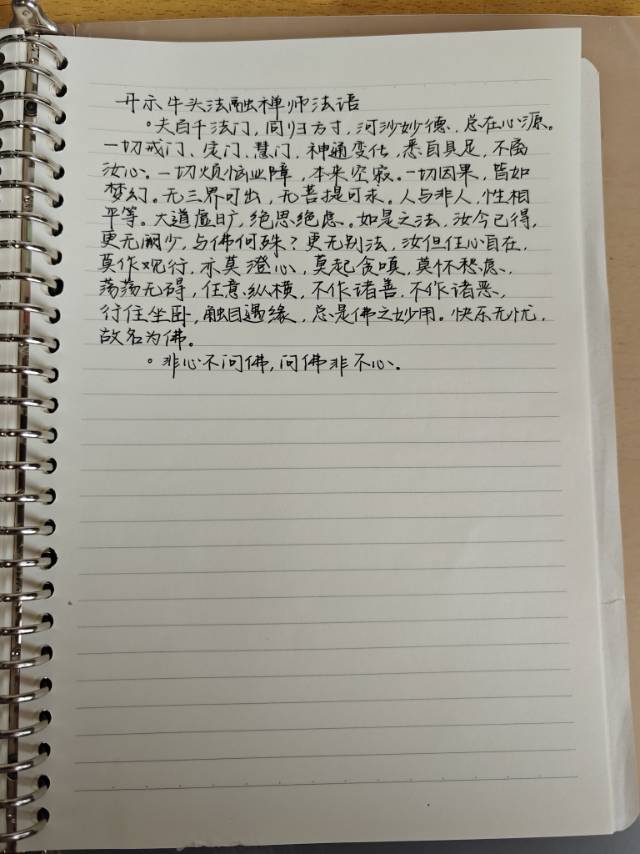 开示牛头法融禅师法语
。夫百千法门,同归方寸,河沙妙德,总在心源。
一切戒门、定门、慧门、神通变化,悉自具足,不离
汝心。一切烦恼业障,本来空寂。一切因果,皆如
梦幻。无三界可出,无菩提可求。人与非人,性相
平等。大道虚旷,绝思绝虑。如是之法,汝今已得,
更无阙少,与佛何殊?更无别法,汝但任心自在,
莫作观行,亦莫澄心,莫起贪嗔,莫怀愁虑,
荡荡无碍,任意纵横,不作诸善,不作诸恶,
行住坐卧,触目遇缘,总是佛之妙用。快乐无忧,
故名为佛。
。非心不问佛,问佛非不心。